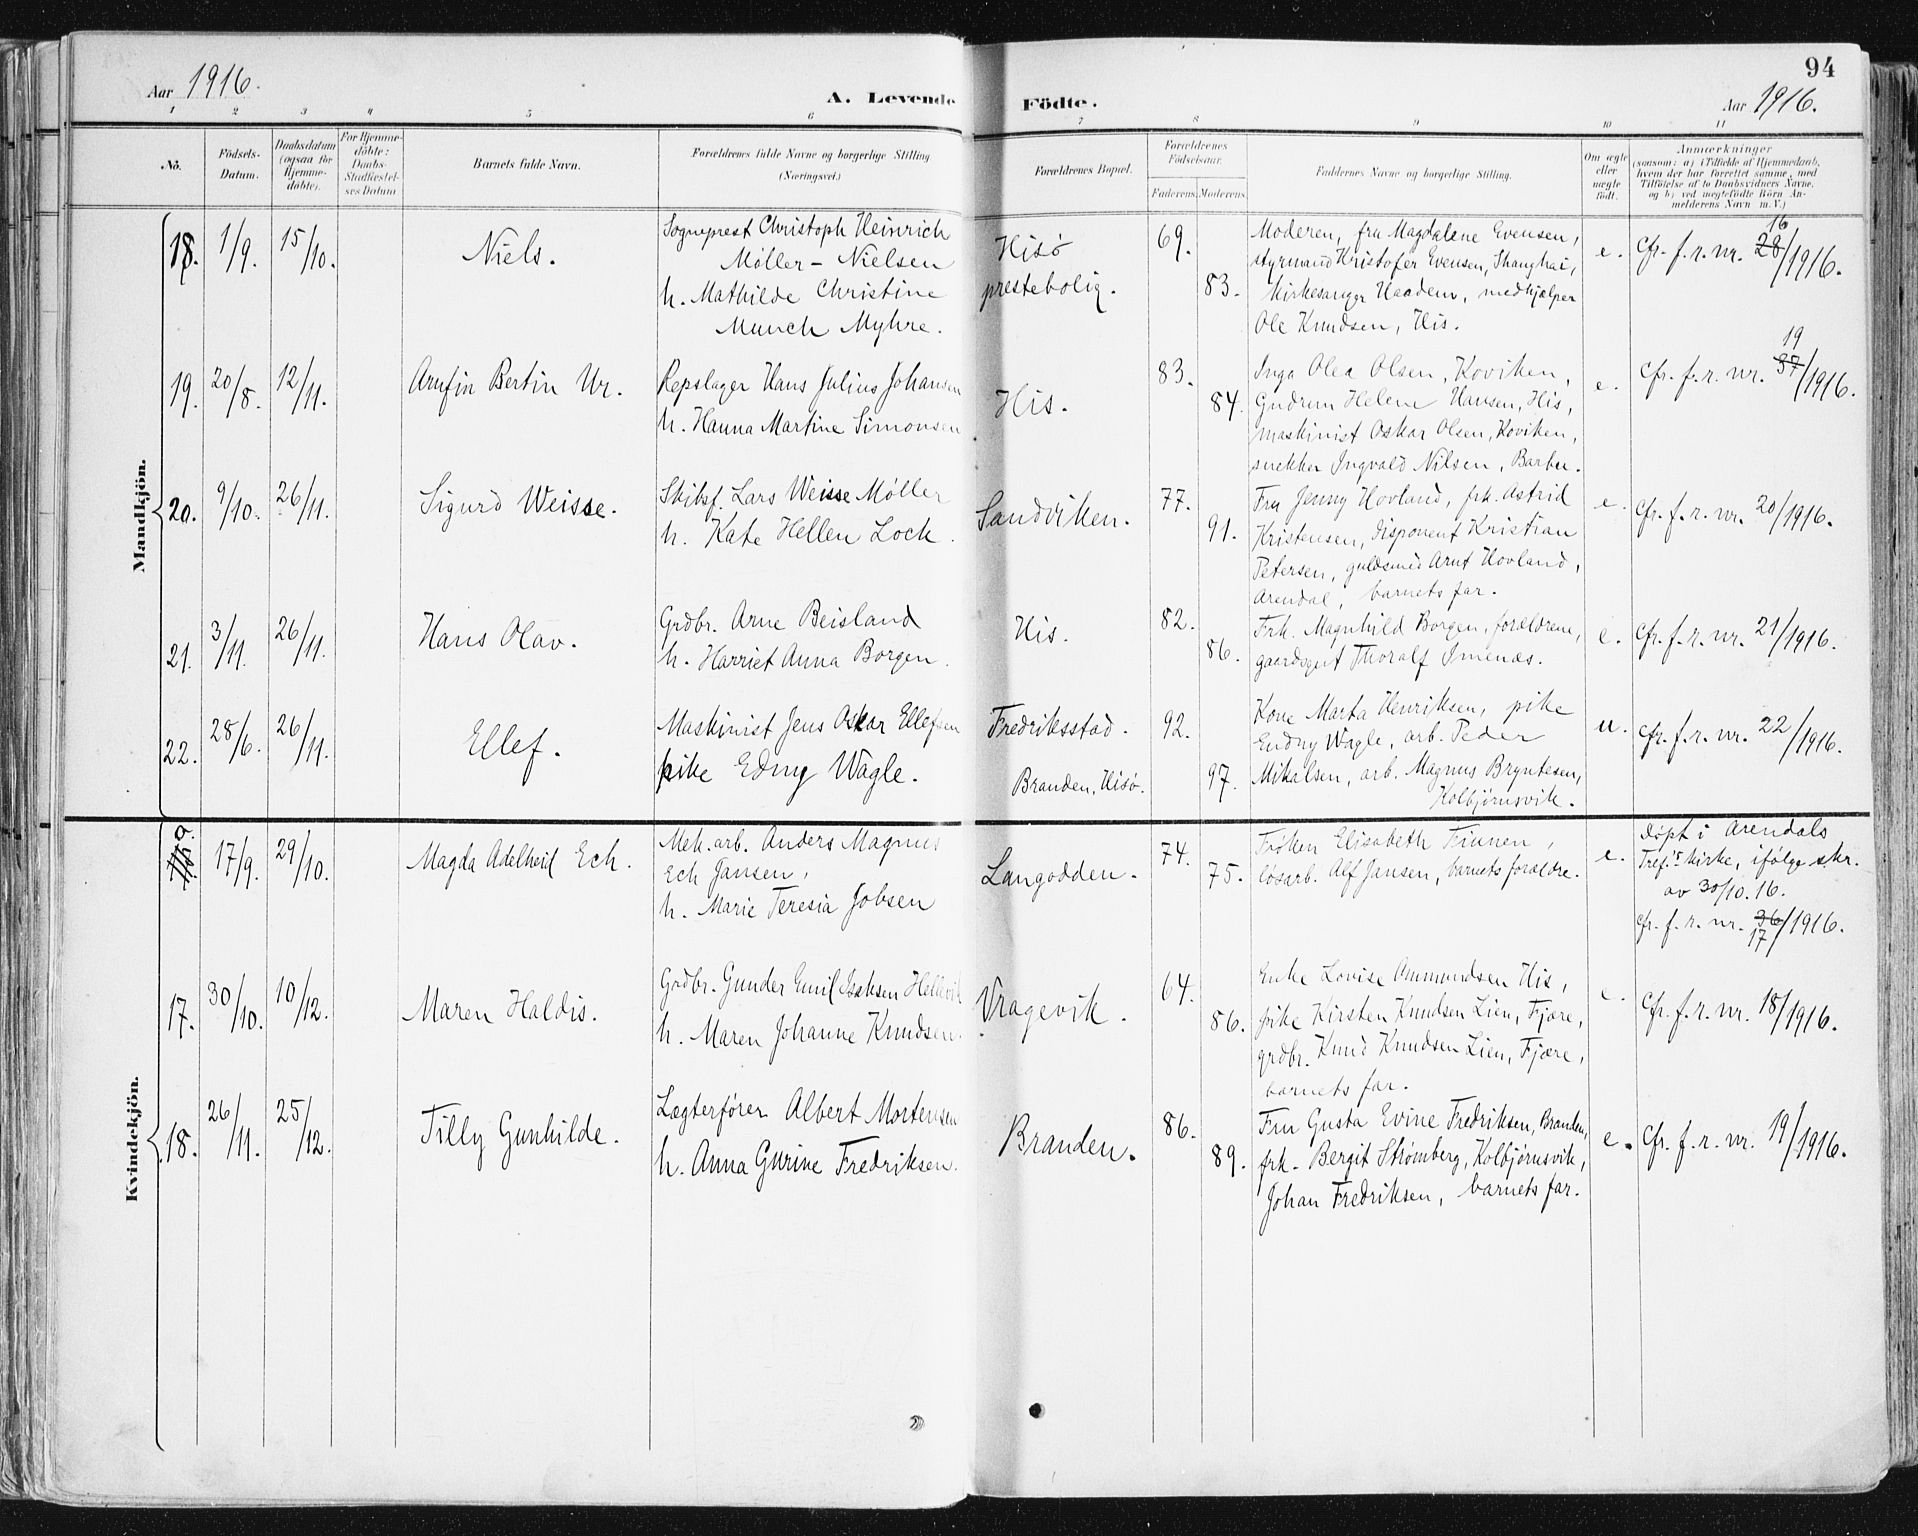 94
Aar 1916.
A. Levende Födte.
Aar 1916.
1 2 3 4 5 6 7 8 9 10 11
No.
Födsels-
Datum.
Daabsdatum
(ogsaa for
Hjemme-
döbte).
For Hjemme-
döbte:
Daabs-
Stadfæstel-
ses Datum
Barnets fulde Navn.
Forældrenes fulde Navne og borgerlige Stilling
(Næringsvei.)
Forældrenes Bopæl.
Forældrenes
Födselsaar.
Faderens. Moderens.
Faddernes Navne og borgerlige Stilling.
Om ægte
eller
uægte
födt.
Anmærkninger
(saasom: a) i Tilfælde af Hjemmedaab,
hvem der har forrettet samme, med
Tilföielse af to Daabsvidners Navne,
og b) ved uægtefödte Börn An-
melderens Navn m. V.)
Mandkjön.
18. 1/9. 15/10.
Niels.
Sogneprest Christoph Heinrich
Møller-Nielsen
h. Mathilde Christine
Munch Myhre.
Hisø
prestebolig.
69.
83.
Moderen, fru Magdalene Evensen,
styrmand Kristofer Evensen, Shanghai,
Kirkesanger Haadem, medhjælper
Ole Knudsen, His.
e.
16
Cfr. f. r. nr. 28/1916.
19. 20/8. 12/11.
Arnfin Bertin Ur.
Repslager Hans Julius Johansen
h. Hanna Martine Simonsen
His.
83.
84.
Inga Olea Olsen, Koviken,
Gudrun Helene Hansen, His,
maskinist Oskar Olsen, Koviken,
snekker Ingvald Nilsen, Barbu.
e.
19
Cfr. f. r. nr. 37/1916.
20. 9/10. 26/11.
Sigurd Weisse.
Skibsf. Lars Weisse Møller
h. Kate Hellen Lock.
Sandviken.
77.
91.
Fru Jenny Hovland, frk. Astrid
Kristensen, disponent Kristian
Petersen, guldsmed Arnt Hovland,
Arendal, barnets far.
e.
Cfr. f. r. nr. 20/1916.
21. 3/11. 26/11.
Hans Olav.
Grdbr. Arne Beisland
h. Harriet Anna Borgen.
His.
82.
86.
Frk. Magnhild Borgen, forældrene,
gaardsgut Thoralf Imenæs.
e.
Cfr. f. r. nr. 21/1916.
22. 28/6. 26/11.
Ellef.
Maskinist Jens Oskar Ellefsen
pike Edny Wagle.
Fredriksstad.
Branden, Hisø.
92.
97.
Kone Marta Henriksen, pike
Endny Wagle, arb. Peder
Mikalsen, arb. Magnus Bryntesen,
Kolbjørnsvik.
u.
Cfr. f. r. nr. 22/1916.
Kvindekjön.
17/9. 29/10.
Magda Adelheid Ech.
Mek. arb. Anders Magnus
Ech Jansen,
h. Marie Teresia Jobsen
Langodden.
74.
75.
Frøken Elisabeth Finnen,
løsarb. Alf Jansen, barnets forældre.
e.
Døpt i Arendals
Tref.s Kirke, ifølge skr.
av 30/10. 16.
Cfr. f. r. nr. 36/1916.
17
17. 30/10. 10/12.
Maren Haldis.
Grdbr. Gunder Emil Isaksen Hellevik
h. Maren Johanne Knudsen.
Vragevik.
64.
86.
Enke Lovise Ommundsen His,
pike Kirsten Knudsen Lien, Fjære,
grdbr. Knud Knudsen Lien, Fjære,
barnets far.
e.
Cfr. f. r. nr. 18/1916.
18. 26/11. 25/12.
Tilly Gunhilde.
Lægterfører Albert Mortensen
h. Anna Gurine Fredriksen.
Branden.
86.
89.
Fru Gusta Evine Fredriksen, Branden,
frk. Bergit Strømberg, Kolbjørnsvik,
Johan Fredriksen, barnets far.
e.
Cfr. f. r. nr. 19/1916.